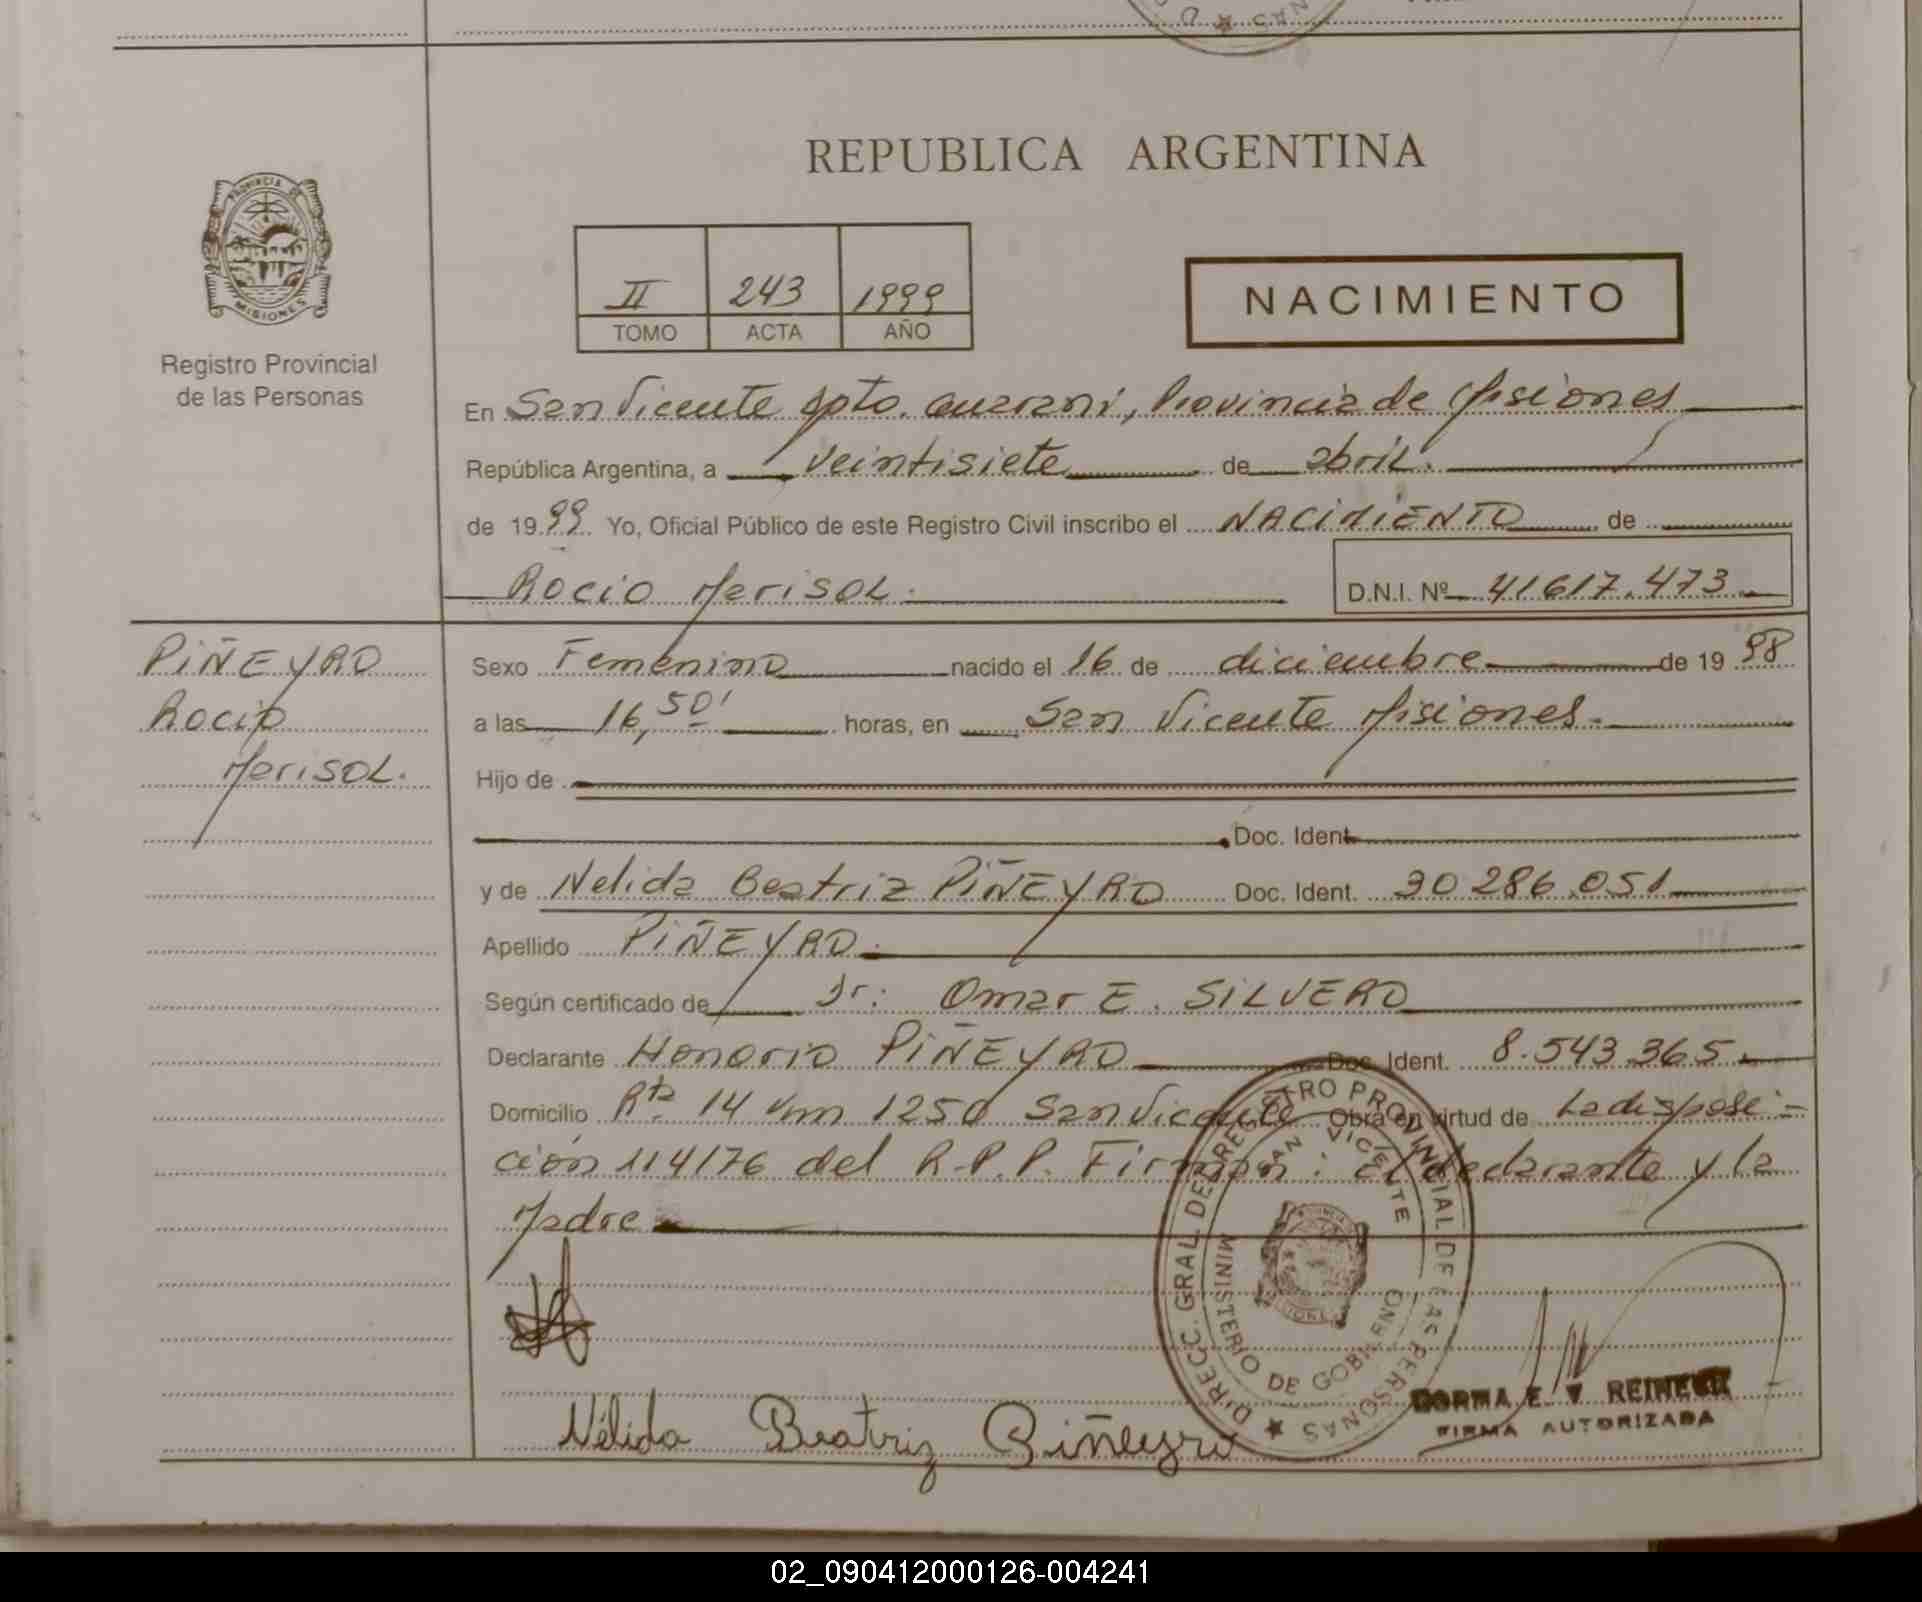 REPUBLICA ARGENTINA
PROVINCIA DE
MISIONES
Registro Provincial
de las Personas
II 243 1999
TOMO ACTA AÑO
NACIMIENTO
En San Vicente Dpto. Guaraní, Provincia de Misiones
República Argentina, a veintisiete de abril.
de 1999 Yo, Oficial Público de este Registro Civil inscribo el NACIMIENTO de
Rocio Marisol.
D.N.I. Nº 41617.473
PIÑEYRO
Rocio
Marisol.
Sexo Femenino nacido el 16 de diciembre de 1998
a las 16,50' horas, en San Vicente Misiones.
Hijo de
Doc. Ident.
y de Nelida Beatriz PIÑEYRO Doc. Ident. 30 286.051
Apellido PIÑEYRO.
Según certificado de Dr: Omar E. SILVERO
Declarante Honorio PIÑEYRO Doc. Ident. 8.543.365.
Domicilio Rta 14 Km 1250 San Vicente Obra en virtud de La disposi-
ción 114/76 del R.P.P. Firman: el declarante y la
Madre
DIRECC. GRAL. DE REGISTRO PROVINCIAL DE LAS PERSONAS
SAN VICENTE
MINISTERIO DE GOBIERNO
Nélida Beatriz Piñeyro
FIRMA AUTORIZADA
02_090412000126-004241